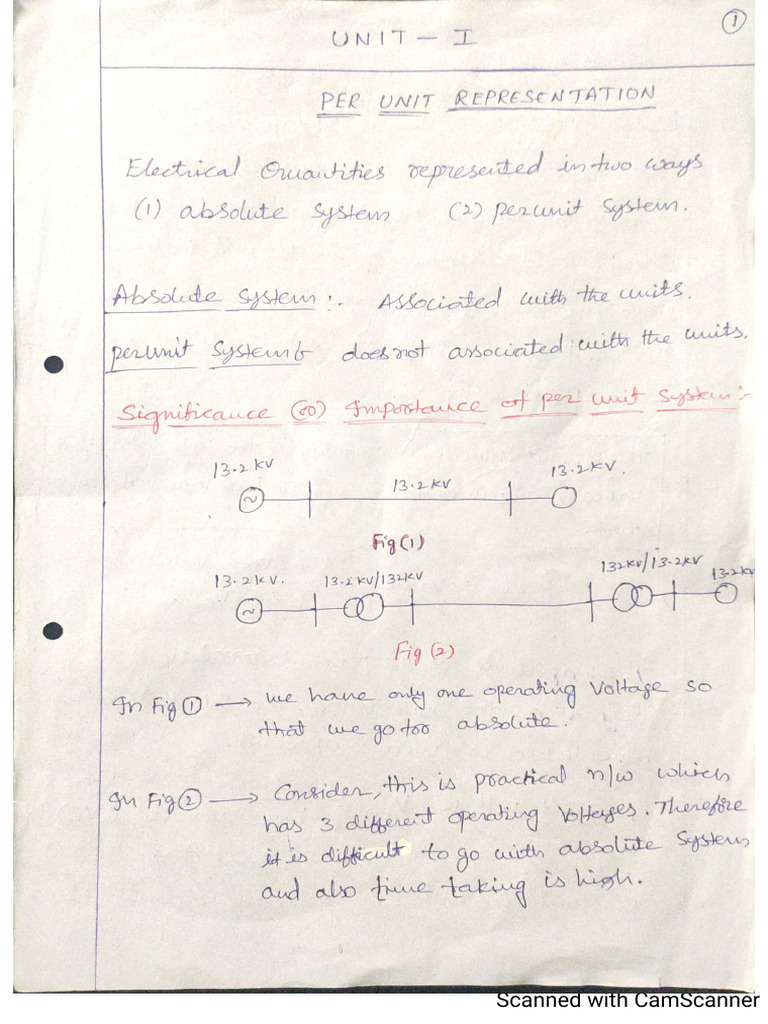 1
UNIT - I
PER UNIT REPRESENTATION
Electrical Quantities represented in two ways
(1) absolute system (2) perunit system.
Absolute system :- Associated with the units.
perunit system :- does not associated with the units.
Significance (or) Importance of per unit system :-
13.2 KV 13.2 KV 13.2 KV.
~
Fig (1)
13.2 KV. 13.2 KV/132KV 132KV/13.2KV 13.2KV
~
Fig (2)
In Fig 1 → we have only one operating voltage so
that we go for absolute.
In Fig 2 → Consider, this is practical n/w which
has 3 different operating voltages. Therefore
it is difficult to go with absolute system
and also time taking is high.
Scanned with CamScanner